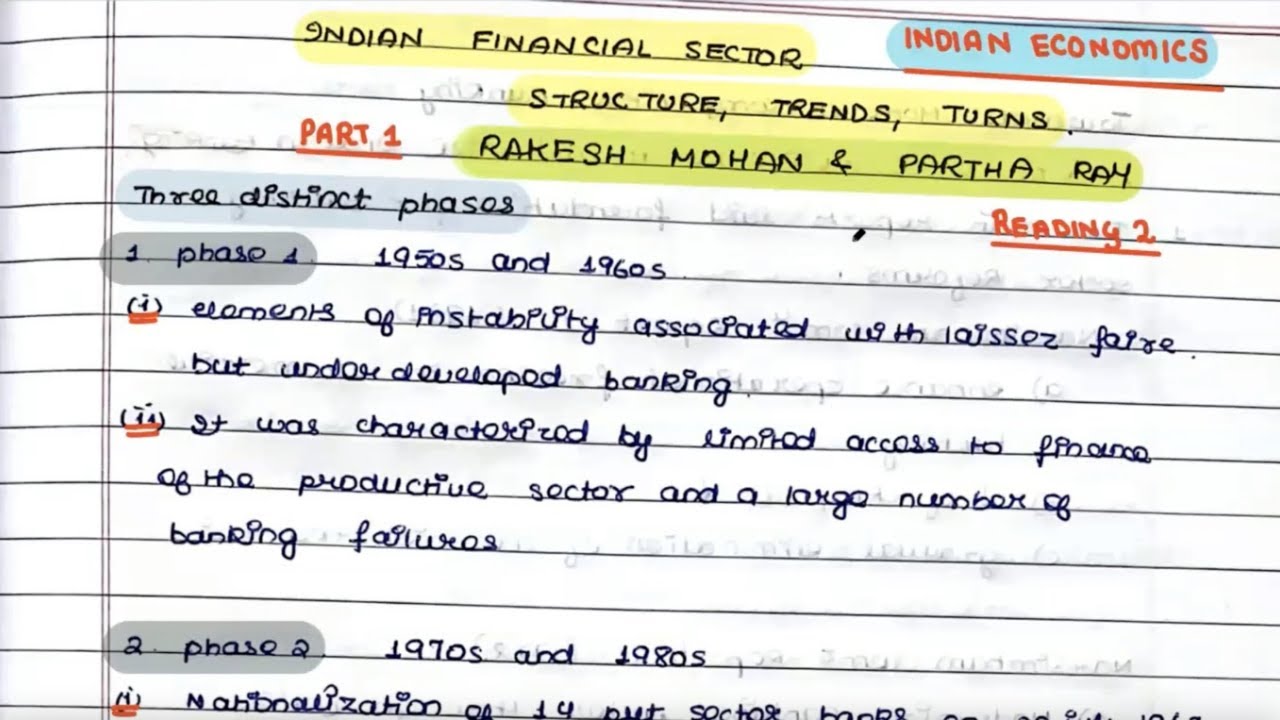 INDIAN FINANCIAL SECTOR
INDIAN ECONOMICS
STRUCTURE, TRENDS, TURNS.
PART 1
RAKESH MOHAN & PARTHA RAY
Three distinct phases
READING 2
1. phase 1 1950s and 1960s
(i) elements of instability associated with laissez faire.
but underdeveloped banking.
(ii) It was characterized by limited access to finance
of the productive sector and a large number of
banking failures
2. phase 2 1970s and 1980s
(i) Nationalization of 14 sector banks